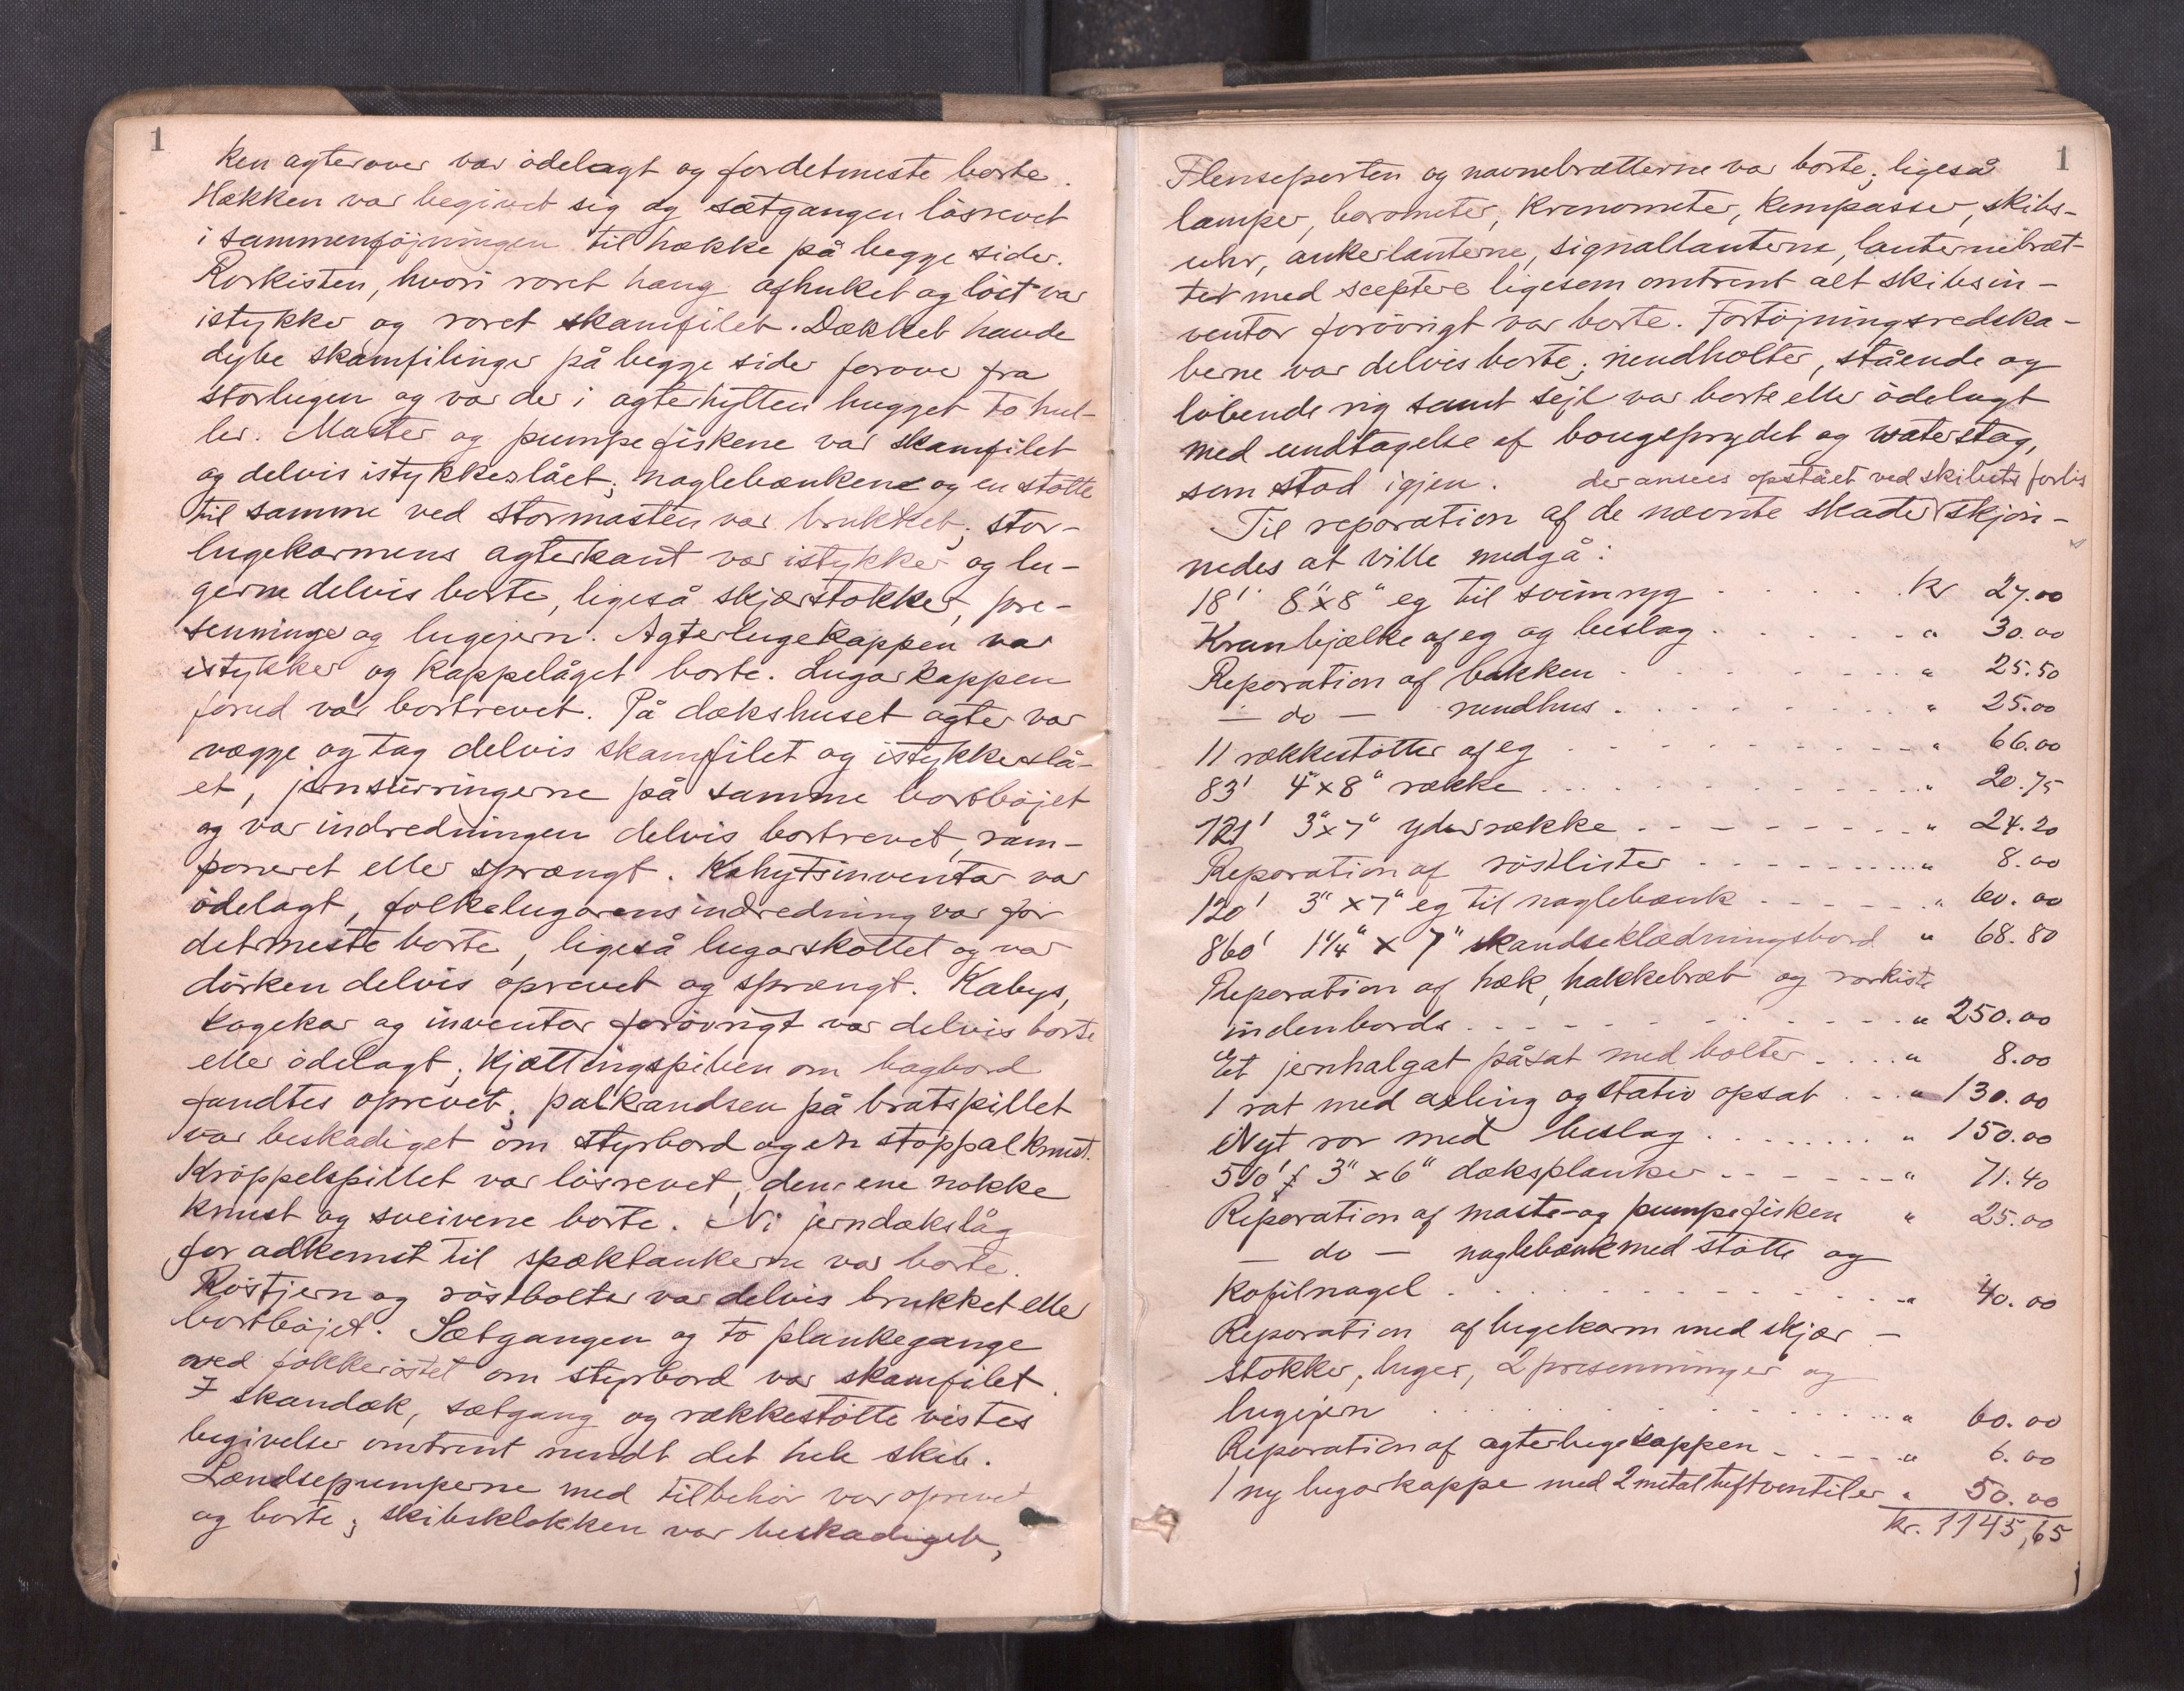 1
ken agterover var ödelagt og fordetmeste borte.
Hækken var begivet sig og sætgangen lösrevet
i sammenföjningen til hække på begge sider.
Rorkisten, hvori roret hang afhuket og löst var
istykker og roret skamfilet. Dækket havde
dybe skamfilinger på begge sider forover fra
storlugen og var der i agterhytten hugget to hul-
ler. Master og pumpefiskene var skamfilet
og delvis istykkeslået; naglebænkene og en stötte
til samme ved stormasten var brukket; stor-
lugekarmens agterkant var istykker og lu-
gerne delvis borte, ligeså skjærstokker, pre-
senninger og lugejern. Agterlugekappen var
istykker og kappelåget borte. Lugarkappen
forud var bortrevet. På dækshuset agter var
vægge og tag delvis skamfilet og istykkerslå-
et, jernsurringerne på samme bortböjet
og var indredningen delvis bortrevet, ram-
poneret eller sprængt. Kahytsinventar var
ödelagt, folkelugarens indredning var for
detmeste borte, ligeså lugarskottet og var
dörken delvis oprevet og sprængt. Kabys,
kogekar og inventar forövrigt var delvis borte
eller ödelagt; kjættingspiben om bagbord
fandtes oprevet; palkandsen på bratspillet
var beskadiget om styrbord og en stöppal knust.
Kröppelspillet var lösrevet, den ene nokke
knust og sveivene borte. Ni jerndækslåg
for adkomst til spæktankerne var borte.
Röstjern og röstbolter var delvis brukket eller
bortböjet. Sætgangen og to plankegange
ved fokkeröstet om styrbord var skamfilet.
I skandæk, sætgang og rækkestötte vistes
begivelser omtrent rundt det hele skib.
Lændsepumperne med tilbehör var oprevet
og borte; skibsklokken var beskadiget,
1
Flenseporten og navnebrætterne var borte; ligeså
lamper, barometer, kronometer, kompasser, skibs-
uhr, ankerlanterne, signallanterne, lanternebræt-
tet med scepter ligesom omtrent alt skibsin-
ventar forövrigt var borte. Fortöjningsredska-
berne var delvis borte; rundholter, stående og
löbende rig samt sejl var borte eller ödelagt
med undtagelse af bougsprydet og waterstag,
som stod igjen. der ansees opstået ved skibets forlis
Til reparation af de nævnte skader skjön-
nedes at ville medgå:
18' 8"x8" eg til svinryg . . . . . kr 27.00
Kranbjælke af eg og beslag . . . . . " 30.00
Reparation af bakken . . . . . " 25.50
— do — rundhus . . . . . " 25.00
11 rækkestötter af eg . . . . . " 66.00
83' 4"x8" række . . . . . " 20.75
121' 3"x7" yderrække . . . . . " 24.20
Reparation af röstlister . . . . . " 8.00
120' 3"x7" eg til naglebænk . . . . . " 60.00
860' 1¼"x7" skandseklædningsbord " 68.80
Reparation af hæk, hakkebræt og rorkiste
indenbords . . . . . " 250.00
Et jernhalgat påsat med bolter . . . . " 8.00
1 rat med axling og stativ opsat . . . " 130.00
Nyt ror med beslag . . . . . " 150.00
510' f 3"x6" dæksplanker . . . . . " 71.40
Reparation af maste- og pumpefisken " 25.00
— do — naglebænk med stötte og
kofilnagel . . . . . " 40.00
Reparation af lugekarm med skjær-
stokker, luger, 2 presenninger og
lugejern . . . . . " 60.00
Reparation af agterlugekappen . . . . " 6.00
1 ny lugarkappe med 2 metal luftventiler " 50.00
kr. 1145,65